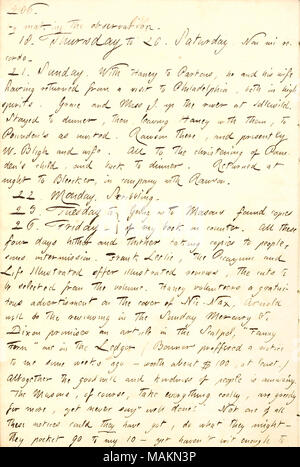 206.
in the observation.
18. Thursday to 20. Saturday. Nau mi re-
cordo.
21. Sunday. With Haney to Partons, he and his wife
having returned from a visit to Philadelphia, both in high
spirits. Grace and Miss J. up the river at Idlewild.
Stayed to dinner, then leaving Haney with them, to
as invited. Rawson there, and presently
W. Bligh and wife. All to the christening of
den's child, and back to dinner. Returned at
night to Bleecker, in company with Rawson.
22. Monday. Scribbling.
23. Tuesday to Going to Masons found copies
26. Friday of my book on counter. All these
four days hither and thither taking copies to people,
sans intermission. Frank Leslie, the Magazine and
Life Illustrated offer illustrated reviews, the cuts to
be selected from the volume. Haney volunteers a gratui-
tous advertisement on the cover of Nic Nax. Arnold
will do the reviewing in the Sunday Mercury &
Dixon promises an article in the Scalpel, "Fanny
Fern" one in the Ledger (Bonner proffered a notice
to me some weeks ago — worth about $100, at least.)
Altogether the goodwill and kindness of people is amazing.
The Masons, of course, take everything coolly, are greedy
for more, yet never say "well done." Not one of all
these notices could they have got, do what they might —
they pocket 90 to my 10 — yet haven't wit enough to